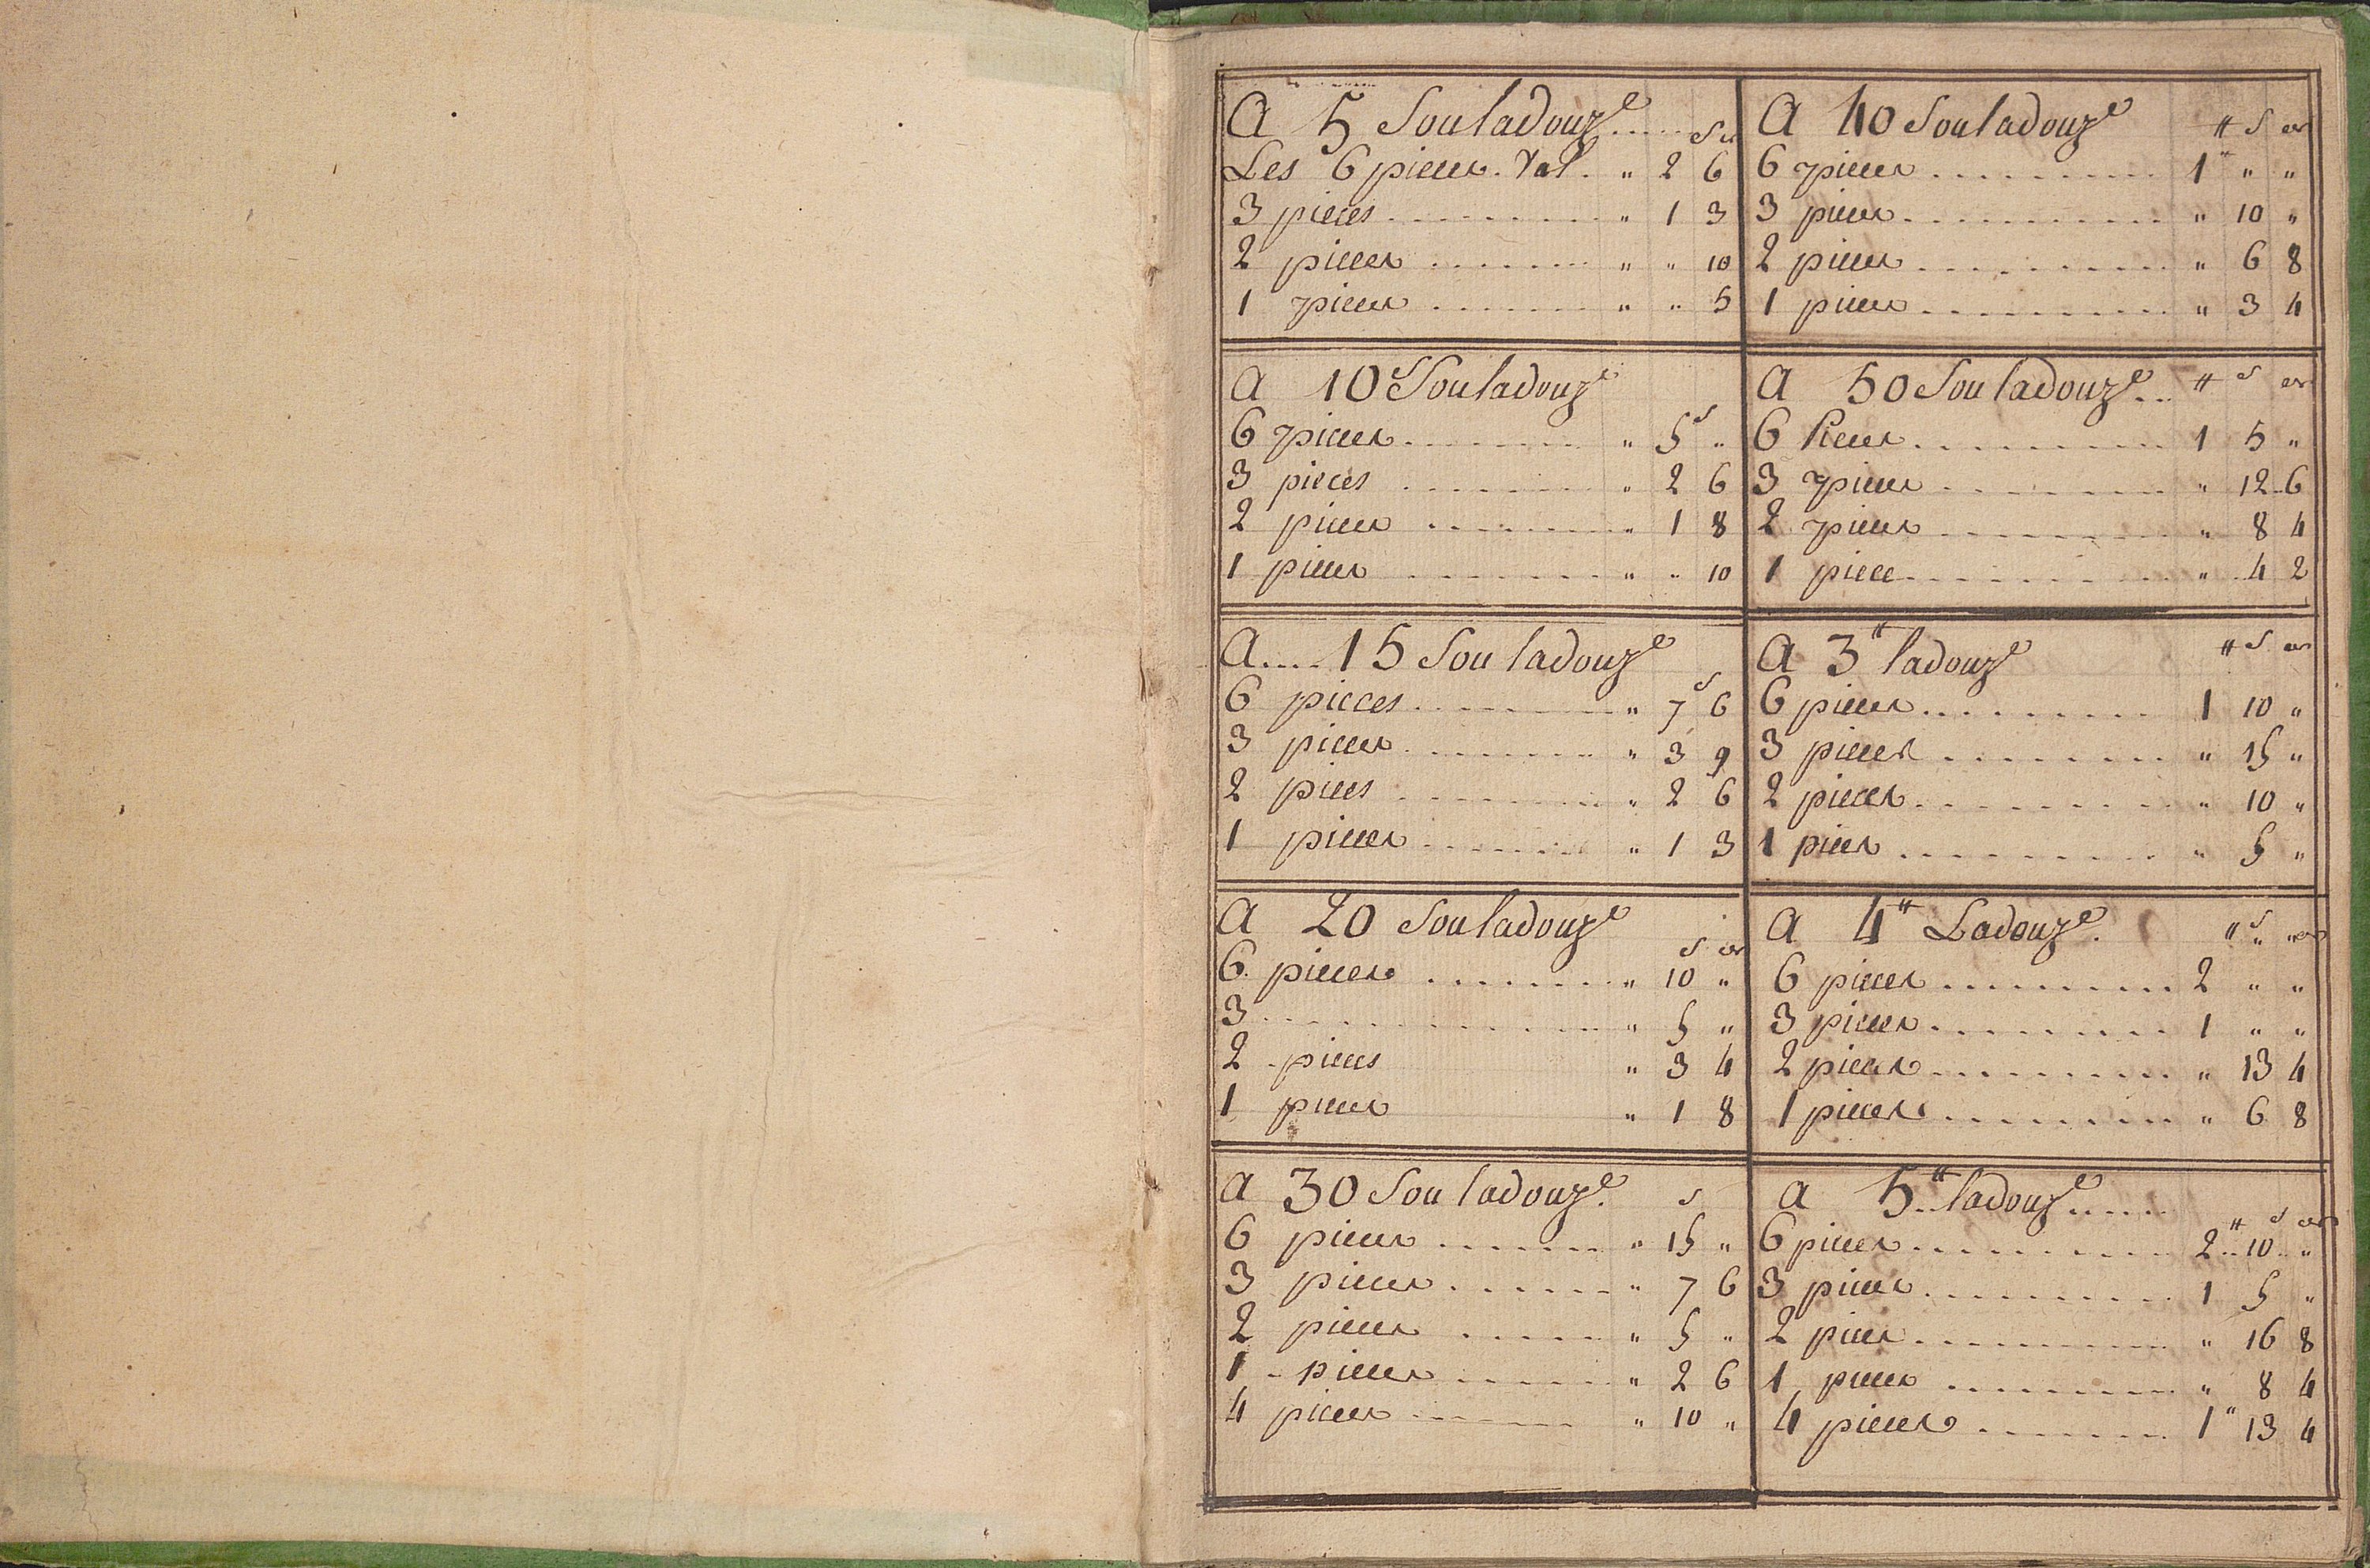 A 5 Sou ladouz.e ..... S d
Les 6 pieces. Val. " 2 6
3 pieces .......... " 1 3
2 pieces .......... " " 10
1 pieces .......... " " 5
A 10 Sou ladouz.e
6 pieces .......... " 5 s "
3 pieces .......... " 2 6
2 pieces .......... " 1 8
1 pieces .......... " " 10
A .... 15 Sou ladouz.e
6 pieces .......... " 7 s 6
3 pieces .......... " 3 9
2 pieces .......... " 2 6
1 pieces .......... " 1 3
A 20 Sou ladouz.e S d
6 pieces .......... " 10 "
3 .......... " 5 "
2 pieces " 3 4
1 pieces " 1 8
A 30 Sou ladouz.e S
6 pieces .......... " 15 "
3 pieces .......... " 7 6
2 pieces .......... " 5 "
1 pieces .......... " 2 6
4 pieces .......... " 10 "
A 40 Sou ladouz.e # S d
6 pieces .......... 1 " "
3 pieces .......... " 10 "
2 pieces .......... " 6 8
1 pieces .......... " 3 4
A 50 Sou ladouz.e .. # S d
6 Pieces .......... 1 5 "
3 pieces .......... " 12 6
2 pieces .......... " 8 4
1 piece .......... " 4 2
A 3# ladouz.e # S d
6 pieces .......... 1 10 "
3 pieces .......... " 15 "
2 pieces .......... " 10 "
1 pieces .......... " 5 "
A 4# Ladouz.e # S d
6 pieces .......... 2 " "
3 pieces .......... 1 " "
2 pieces .......... " 13 4
1 pieces .......... " 6 8
A 5# ladouz.e ..... # S d
6 pieces .......... 2 10 "
3 pieces .......... 1 5 "
2 pieces .......... " 16 8
1 pieces .......... " 8 4
4 pieces .......... 1 13 4